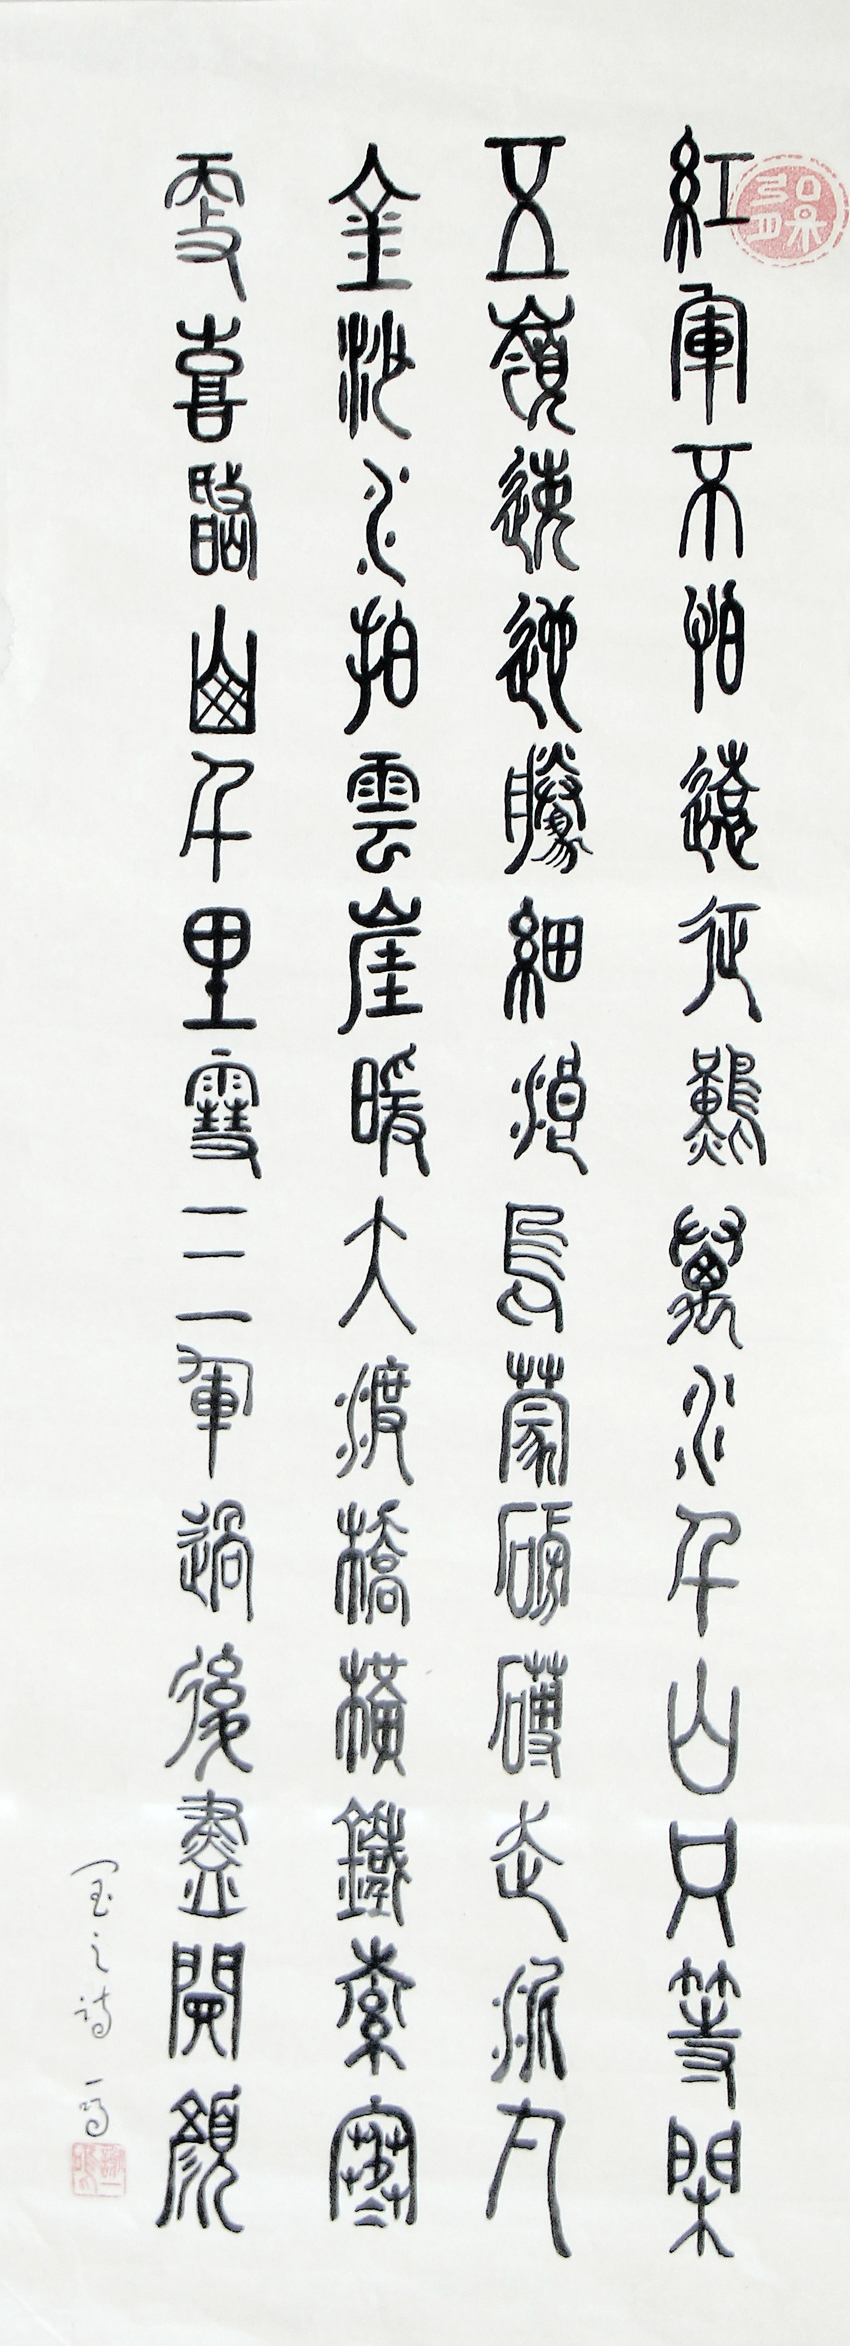 紅軍不怕遠征難萬水千山只等閑
五嶺逶迤騰細浪烏蒙磅礴走泥丸
金沙水拍雲崖暖大渡橋橫鐵索寒
更喜岷山千里雪三軍過後盡開顏
之詩